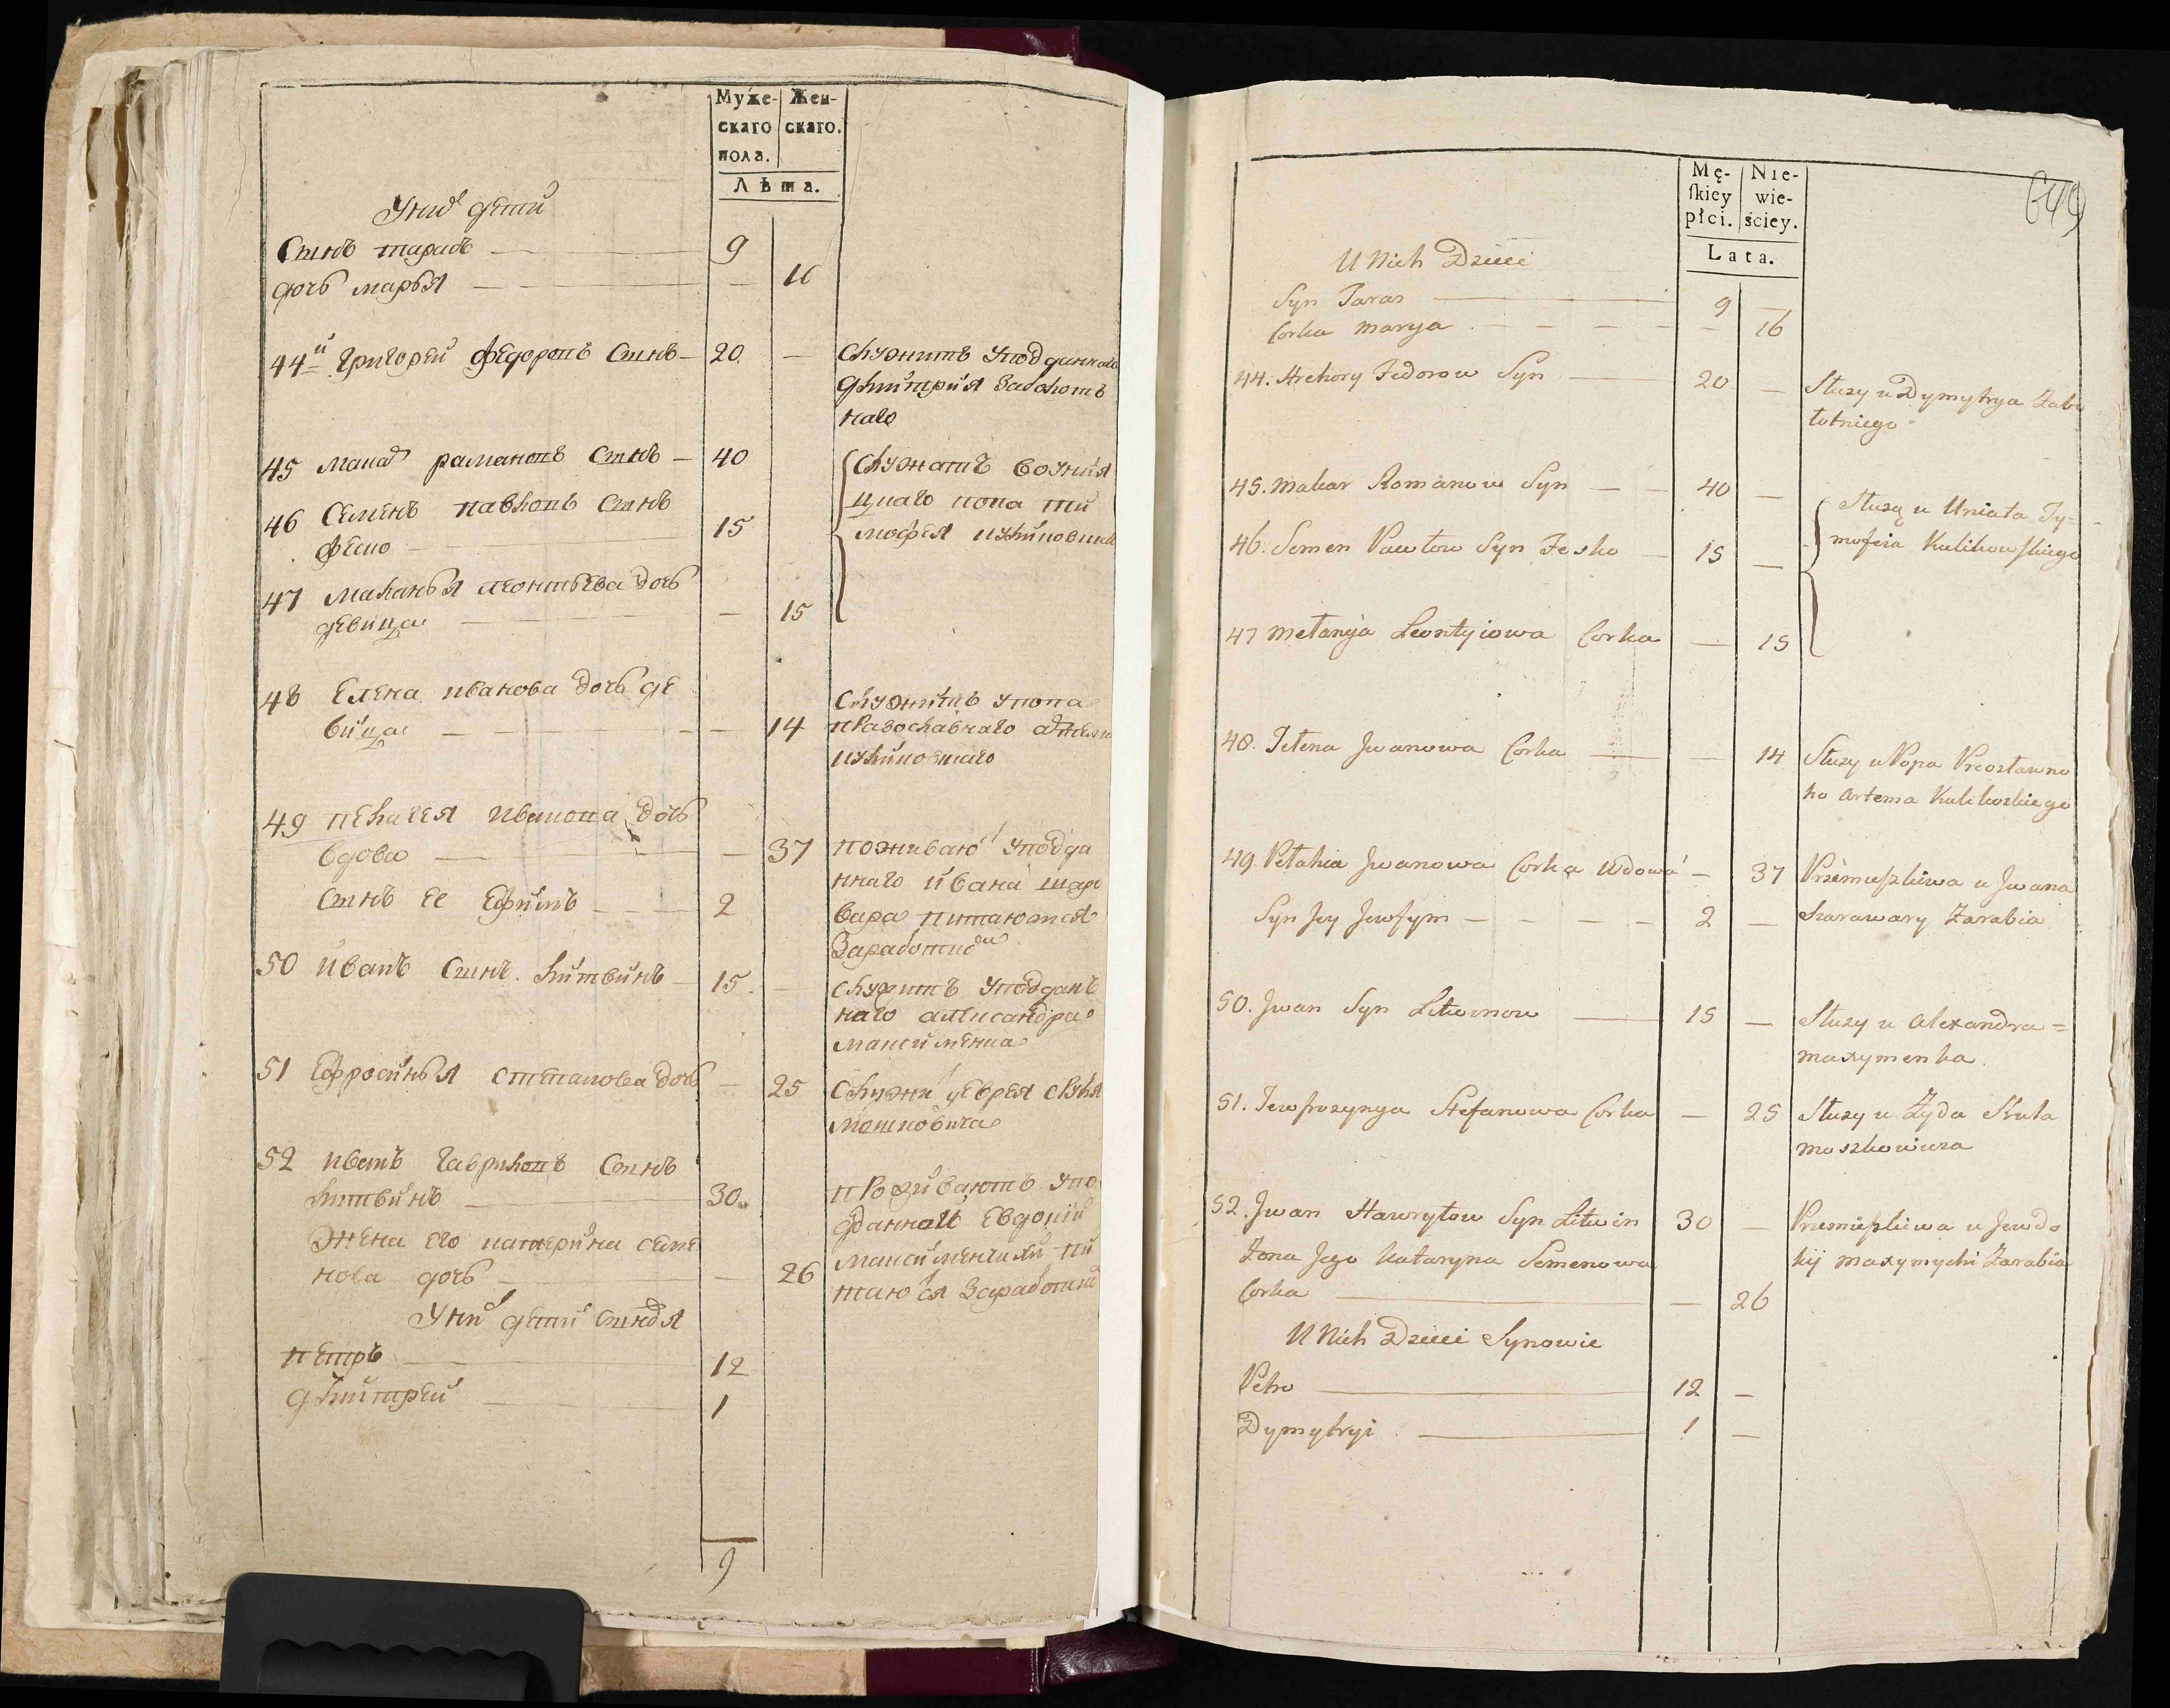 Муже-
скаго
пола.
Жен-
скаго.
Лѣта.
У них дети
Сынъ тарасъ 9
дочь марья 16
44й григорей федоровъ Сынъ 20 — служитъ у подданнаго
дмитрия заболотъ
наго
45 макар рамановъ Сынъ — 40 служатъ во униа
цкаго попа ти
мофея куликовскаго
46 Семенъ павловъ Сынъ
феско 15
47 маланья леонтьева дочь
девица — 15
48 Елена иванова дочь де
вица — 14 служитъ у попа
православнаго
куликовскаго
49 пелагея иванова дочь
вдова — 37 поживаю у подда
ннаго ивана шара
вара питаются
заработкой
Сынъ ее Ефимъ 2
50 иванъ Сынъ литвинъ 15 — служитъ у поддан
наго александра
максименка
51 Ефросинья степанова дочь — 25 служи у еврея сруля
мошковича
52 иванъ гавриловъ Сынъ
литвинъ 30 проживаютъ у по
данной Евдокии
максименчихи пи
таю ся заработкой
жена его катерина семе
нова дочь — 26
У них дети сыновя
петръ 12
дмитрей 1
9
Mę-
ſkiey
płci.
Nie-
wie-
ściey.
Lata.
649
U Nich Dzieci
Syn Taras 9 —
Corka Marya — 16
44. Hrehory Fedorow Syn 20 — Służy u Dymytrya Zabo
łotniego
45. Makar Romanow Syn 40 — Służą u Uniata Ty=
mofeia Kulikowſkiego
46. Semen Pawłow Syn Fesko 15 —
47 Mełanija Leontyiowa Corka — 15
48. Jełena Jwanowa Corka — 14 Służy u Popa Preosławno
ho Artema Kulikoskiego
49. Pełahia Jwanowa Corka Wdowa — 37 Przemieſzkiwa u Jwana
Szarawary Zarabia
Syn Jey Jewfym 2 —
50. Jwan Syn Litwinow 15 — Służy u Alexandra=
Maxymenka
51. Jewfrozynya Stefanowa Corka — 25 Służy u Żyda Srula
Moszkowicza
52. Jwan Hawryłow Syn Litwin 30 — Przemieſzkiwa u Jewdo
kij Maxymychi Zarabia
Żona Jego Kataryna Semenowa
Corka — 26
U Nich Dzieci Synowie
Petro 12 —
Dymytryi 1 —